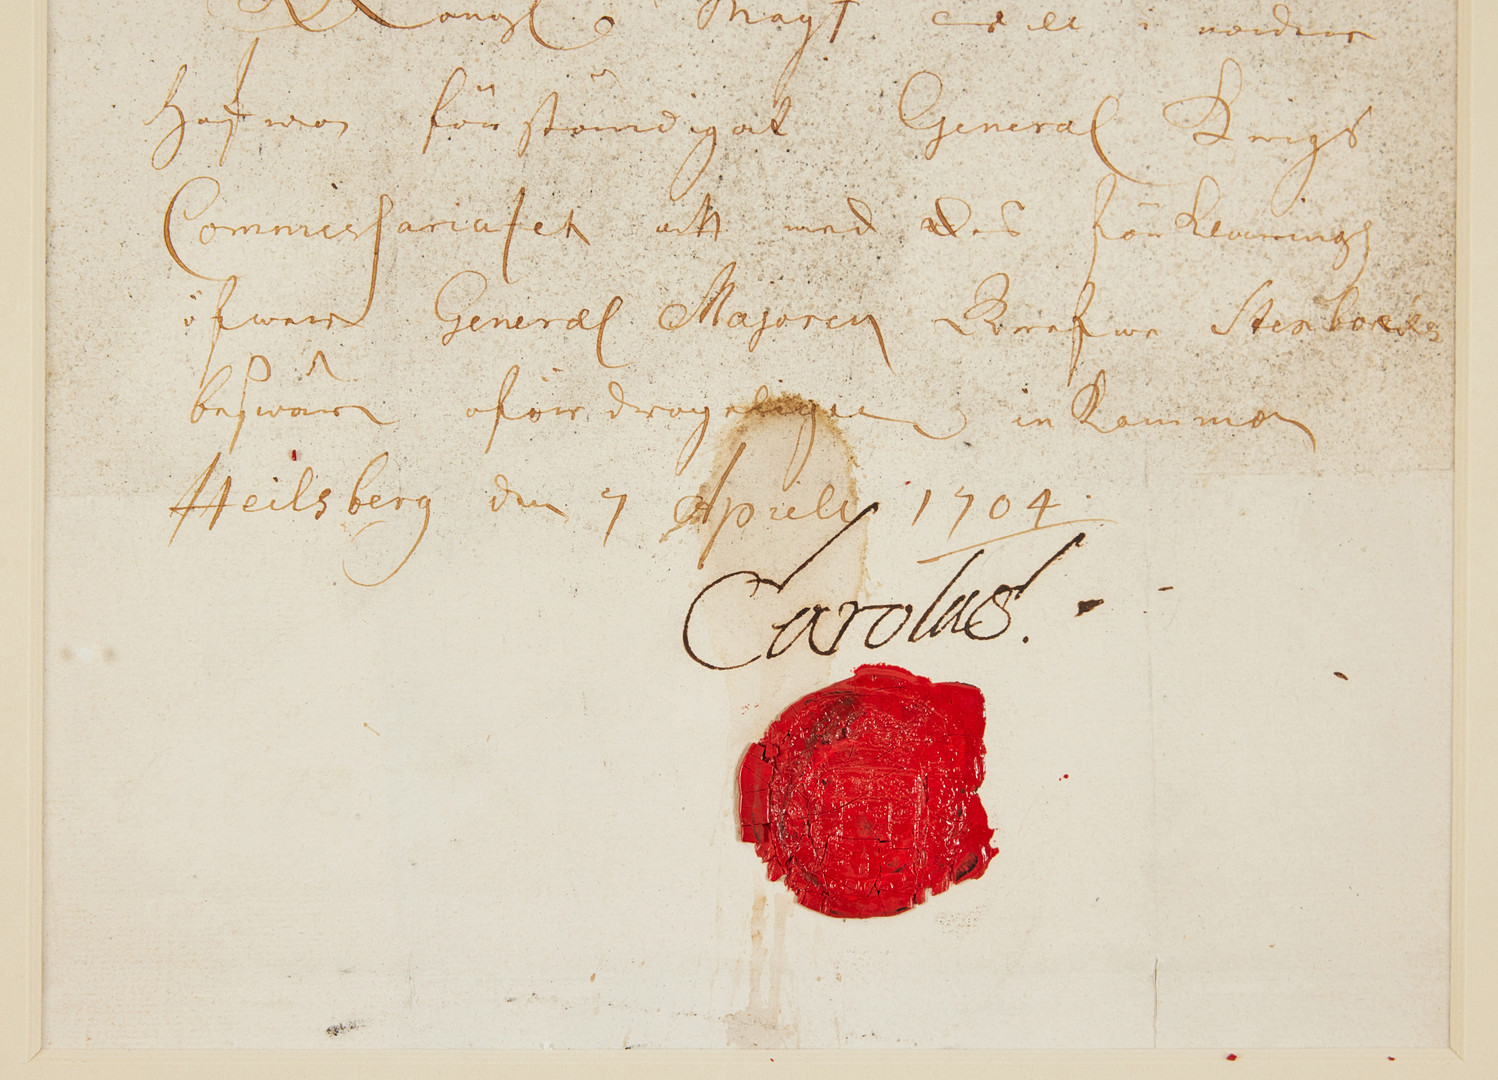 Kongl Mayt
Hafwer förständigat General Krigs
Commissariatet att med des förklaring
öfwer General Majoren Grefwe Stenbocks
beswär ofördrögeligen inkomma
Heilsberg den 7 Aprili 1704.
Carolus.